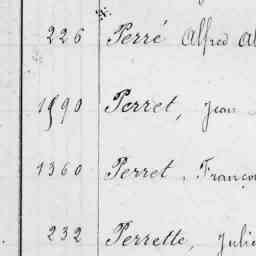 226 Perré Alfred Al
1590 Perret, Jean
1360 Perret, Franço
232 Perrette, Julie